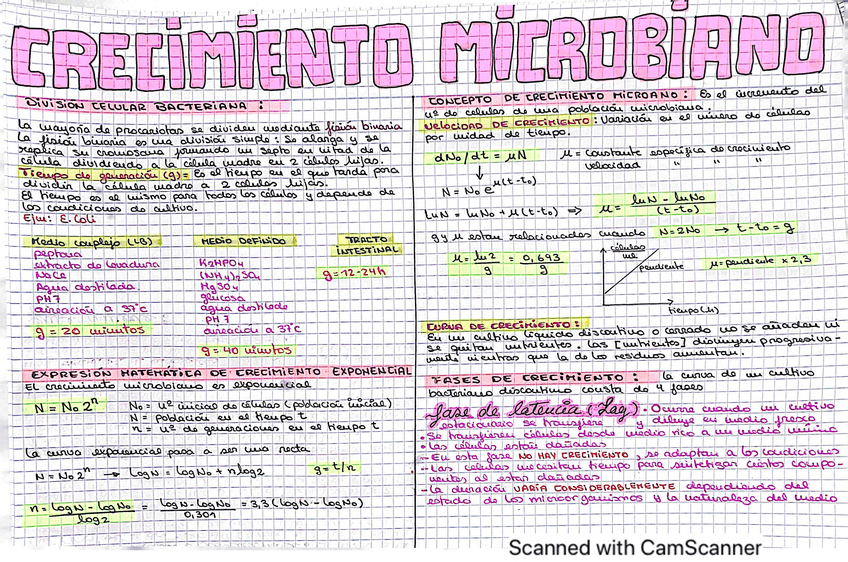 CRECIMIENTO MICROBIANO
DIVISIÓN CELULAR BACTERIANA :
La mayoría de procariotas se dividen mediante fisión binaria
La fisión binaria es una división simple: Se alarga y se
replica su cromosoma formando un septo en mitad de la
célula dividiendo a la célula madre en 2 células hijas.
Tiempo de generación (g) = Es el tiempo en el que tarda para
dividir la célula madre a 2 células hijas.
El tiempo es el mismo para todas las células y depende de
las condiciones de cultivo.
Ejm: E.Coli
Medio complejo (LB)
peptona
extracto de levadura
NaCl
Agua destilada
PH7
aireación a 37°c
g = 20 minutos
MEDIO DEFINIDO
K2HPO4
(NH4)2SO4
MgSO4
glucosa
agua destilada
PH 7
aireación a 37°c
g = 40 minutos
TRACTO
INTESTINAL
g = 12-24h
EXPRESIÓN MATEMÁTICA DE CRECIMIENTO EXPONENCIAL
El crecimiento microbiano es exponencial
N = No 2ⁿ
No = nº inicial de células (población inicial)
N = población en el tiempo t
n = nº de generaciones en el tiempo t
La curva exponencial pasa a ser una recta
N = No 2ⁿ → LogN = logNo + nlog2
g = t/n
n = LogN - LogNo / log2 = LogN - LogNo / 0,301 = 3,3 (logN - LogNo)
CONCEPTO DE CRECIMIENTO MICROANO : Es el incremento del
nº de células de una población microbiana.
VELOCIDAD DE CRECIMIENTO : Variación en el número de células
por unidad de tiempo.
dNo/dt = μN
μ = Constante específica de crecimiento
velocidad " " "
↓
N = No e^μ(t-to)
LnN = LnNo + μ(t-to) ⇒ μ = lnN - lnNo / (t-to)
g y μ estan relacionados cuando N = 2No → t-to = g
μ = ln2 / g = 0,693 / g
células
mL
pendiente
tiempo (h)
μ = pendiente x 2,3
CURVA DE CRECIMIENTO :
En un cultivo líquido discontinuo o cerrado no se añaden ni
se quitan nutrientes. Las [nutrientes] disminuyen progresiva-
mente mientras que la de los residuos aumentan.
FASES DE CRECIMIENTO : La curva de un cultivo
bacteriano discontinuo consta de 4 fases
fase de latencia (Lag) • Ocurre cuando un cultivo
estacionario se transfiere y diluye en medio fresco
• Se transfieren células desde medio rico a un medio mínimo
• Las células están dañadas
- En esta fase NO HAY CRECIMIENTO, se adaptan a las condiciones
- Las células necesitan tiempo para sintetizar ciertos compo-
nentes al estar dañadas
- La duración VARÍA CONSIDERABLEMENTE dependiendo del
estado de los microorganismos y la naturaleza del medio
Scanned with CamScanner